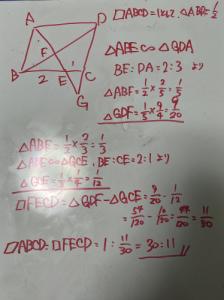 A D
F
B 2 E 1 C
G
□ABCD=1とおく. △ABC=1/2
△ABE∽△GDA
BE:DA=2:3 より
△ABF=1/2×2/5=1/5
△GDF=1/5×9/4=9/20
△ABE=1/2×2/3=1/3
△ABE∽△GCE, BE:CE=2:1より
△GCE=1/3×1/4=1/12
□FECD=△GDF-△GCE=9/20-1/12
=54/120-10/120=44/120=11/30
□ABCD:□FECD=1:11/30=30:11